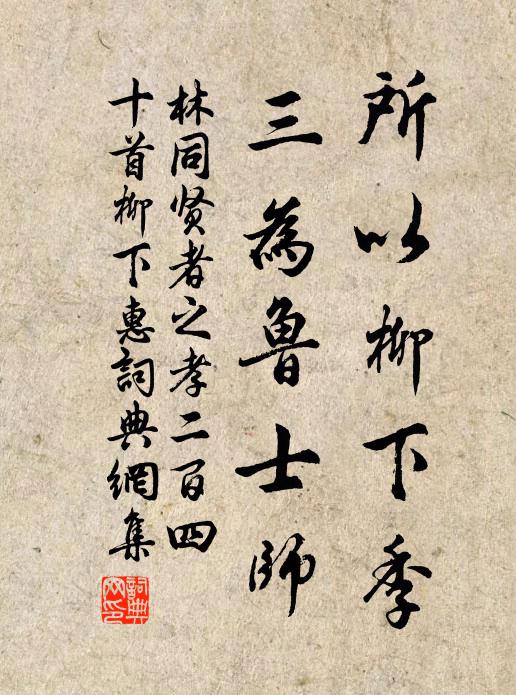 所以柳下季
三為魯士師
林同贤者之孝二百四
十首柳下惠詞典網集
詞典
网印